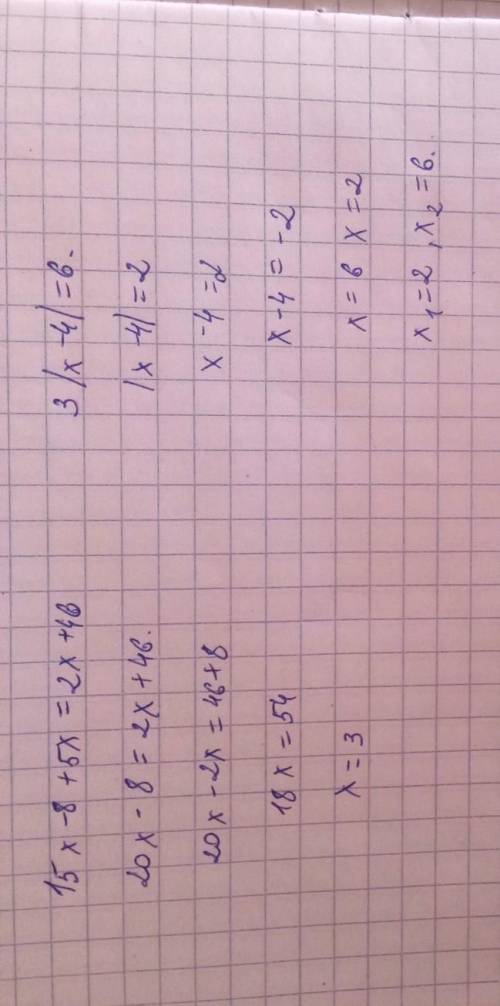 15x-8+5x=2x+46
20x-8=2x+46.
20x-2x=46+8
18x=54
x=3
3|x-4|=6.
|x-4|=2
x-4=2
x-4=-2
x=6 x=2
x₁=2, x₂=6.